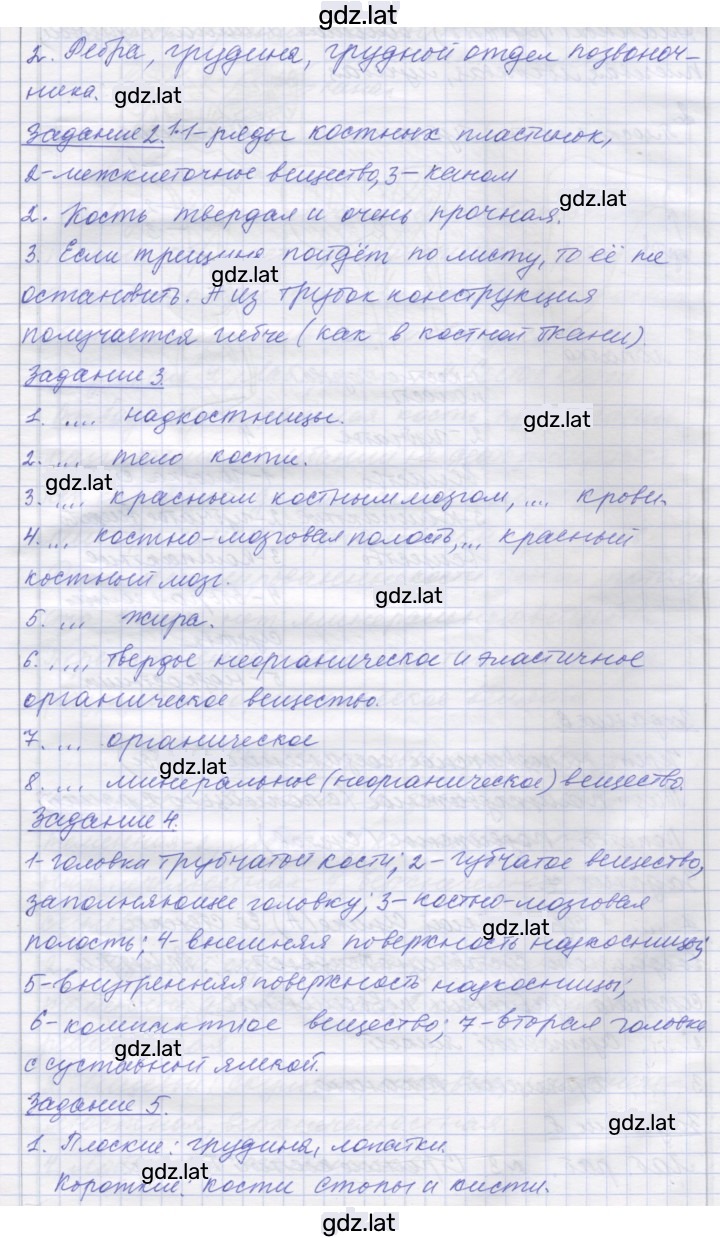 gdz.lat
2. Ребра, грудина, грудной отдел позвоноч-
ника.
gdz.lat
Задание 2. 1. 1-ряды костных пластинок,
2-межклеточное вещество, 3-канал
gdz.lat
2. Кость твердая и очень прочная.
3. Если трещина пойдёт по листу, то её не
gdz.lat
остановить. А из трубок конструкция
получается гибче (как в костной ткани).
Задание 3.
1. .... надкостницы.
gdz.lat
2. ... тело кости.
gdz.lat
3. .... красным костным мозгом, .... крови.
4. ... костно-мозговая полость, ... красный
костный мозг.
gdz.lat
5. ... жира.
6. .... твердое неорганическое и эластичное
органическое вещество.
7. ... органическое
gdz.lat
8. ... минеральное (неорганическое) вещество.
Задание 4.
1-головка трубчатой кости; 2-губчатое вещество,
заполняющие головку; 3-костно-мозговая
gdz.lat
полость; 4-внешняя поверхность надкосницы;
5-внутренняя поверхность надкосницы;
6-компактное вещество; 7-вторая головка
gdz.lat
с суставной ямкой.
Задание 5.
gdz.lat
1. Плоские: грудина, лопатки.
gdz.lat
Короткие: кости стопы и кисти.
gdz.lat